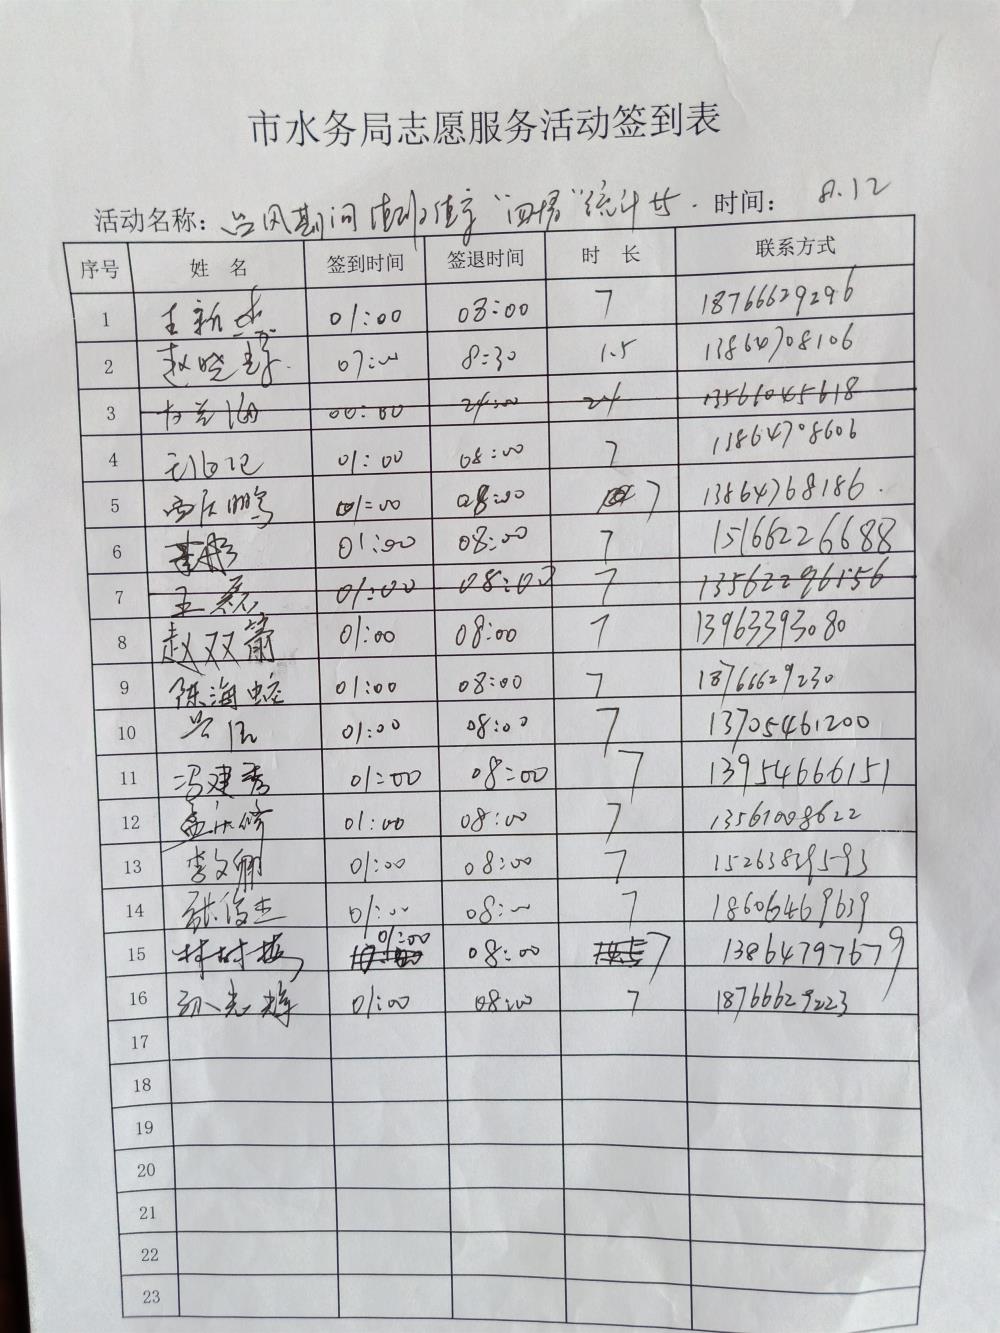 市水务局志愿服务活动签到表
活动名称: 台风期间 "四情"统计 时间: 8.12
序号 姓 名 签到时间 签退时间 时 长 联系方式
1 王新 01:00 08:00 7 18766629296
2 赵晓 07:00 8:30 1.5 13864708106
3 00:00 24:00 24 13561045618
4 01:00 08:00 7 13864708606
5 鹏 01:00 08:00 7 13864768186.
6 李 01:00 08:00 7 15166226688
7 王磊 01:00 08:00 7 13562296156
8 赵双箭 01:00 08:00 7 13963393080
9 陈海蛟 01:00 08:00 7 18766629230
10 01:00 08:00 7 13705461200
11 冯建秀 01:00 08:00 7 13954666151
12 孟庆修 01:00 08:00 7 13561008622
13 李文卿 01:00 08:00 7 15263839593
14 张俊杰 01:00 08:00 7 18606469639
15 林树梅 01:00 08:00 7 13864797679
16 孙志辉 01:00 08:00 7 18766629223
17
18
19
20
21
22
23